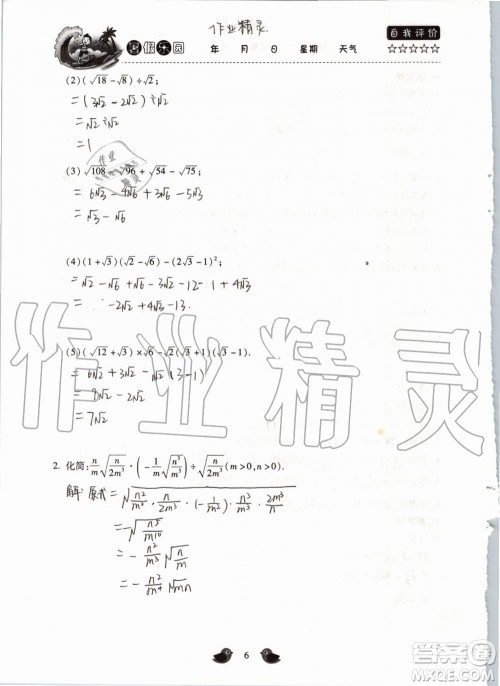 作业精灵
暑假乐园 年 月 日 星期 天气 自我评价
☆☆☆☆☆
(2)(√18-√8)÷√2;
=(3√2-2√2)÷√2
=√2÷√2
=1
(3)√108-√96+√54-√75;
=6√3-4√6+3√6-5√3
=√3-√6
(4)(1+√3)(√2-√6)-(2√3-1)²;
=√2-√6+√6-3√2-12-1+4√3
=-2√2+4√3-13.
(5)(√12+√3)×√6-√2(√3+1)(√3-1).
=6√2+3√2-√2×(3-1)
=9√2-2√2
=7√2
2. 化简:n/m√(n/2m³)·(-1/m√(n³/m³))÷√(n/2m³)(m>0,n>0).
=-√(n⁵/m¹⁰)
=-n²/m³√(n/m)
=-n²/m⁴√mn
6
作业精灵
作业精灵
答案圈
MXQE.COM